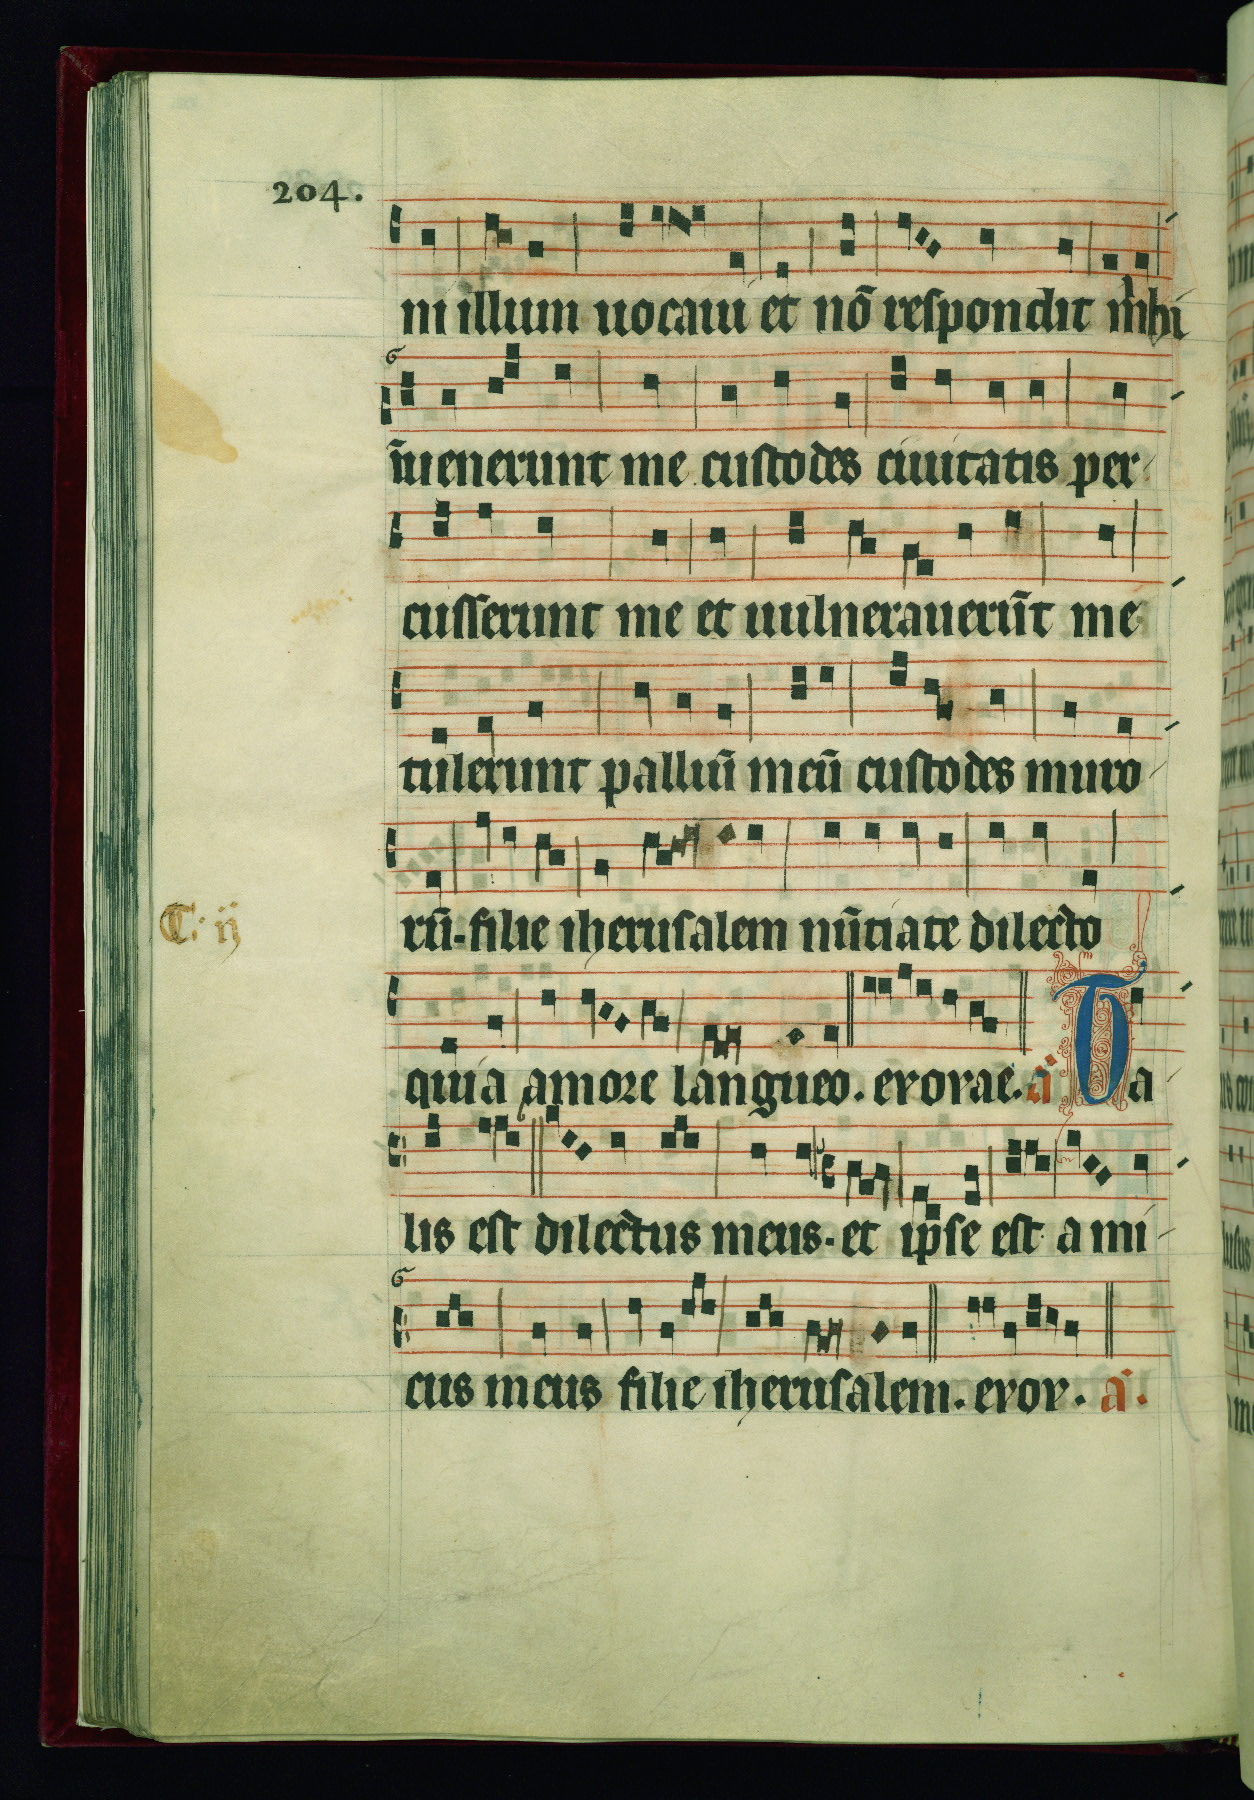 204.
ni illum uocaui et nō respondit mihi
īuenerunt me custodes ciuitatis per
cusserunt me et uulnerauerūt me
tulerunt palliū meū custodes muro
rū. filie iherusalem nūtiate dilecto
C. ij
quia amore langueo. evovae. a͞ Ta
lis est dilectus meus. et ip̄se est ami
G
cus meus filie iherusalem. evov. a͞.